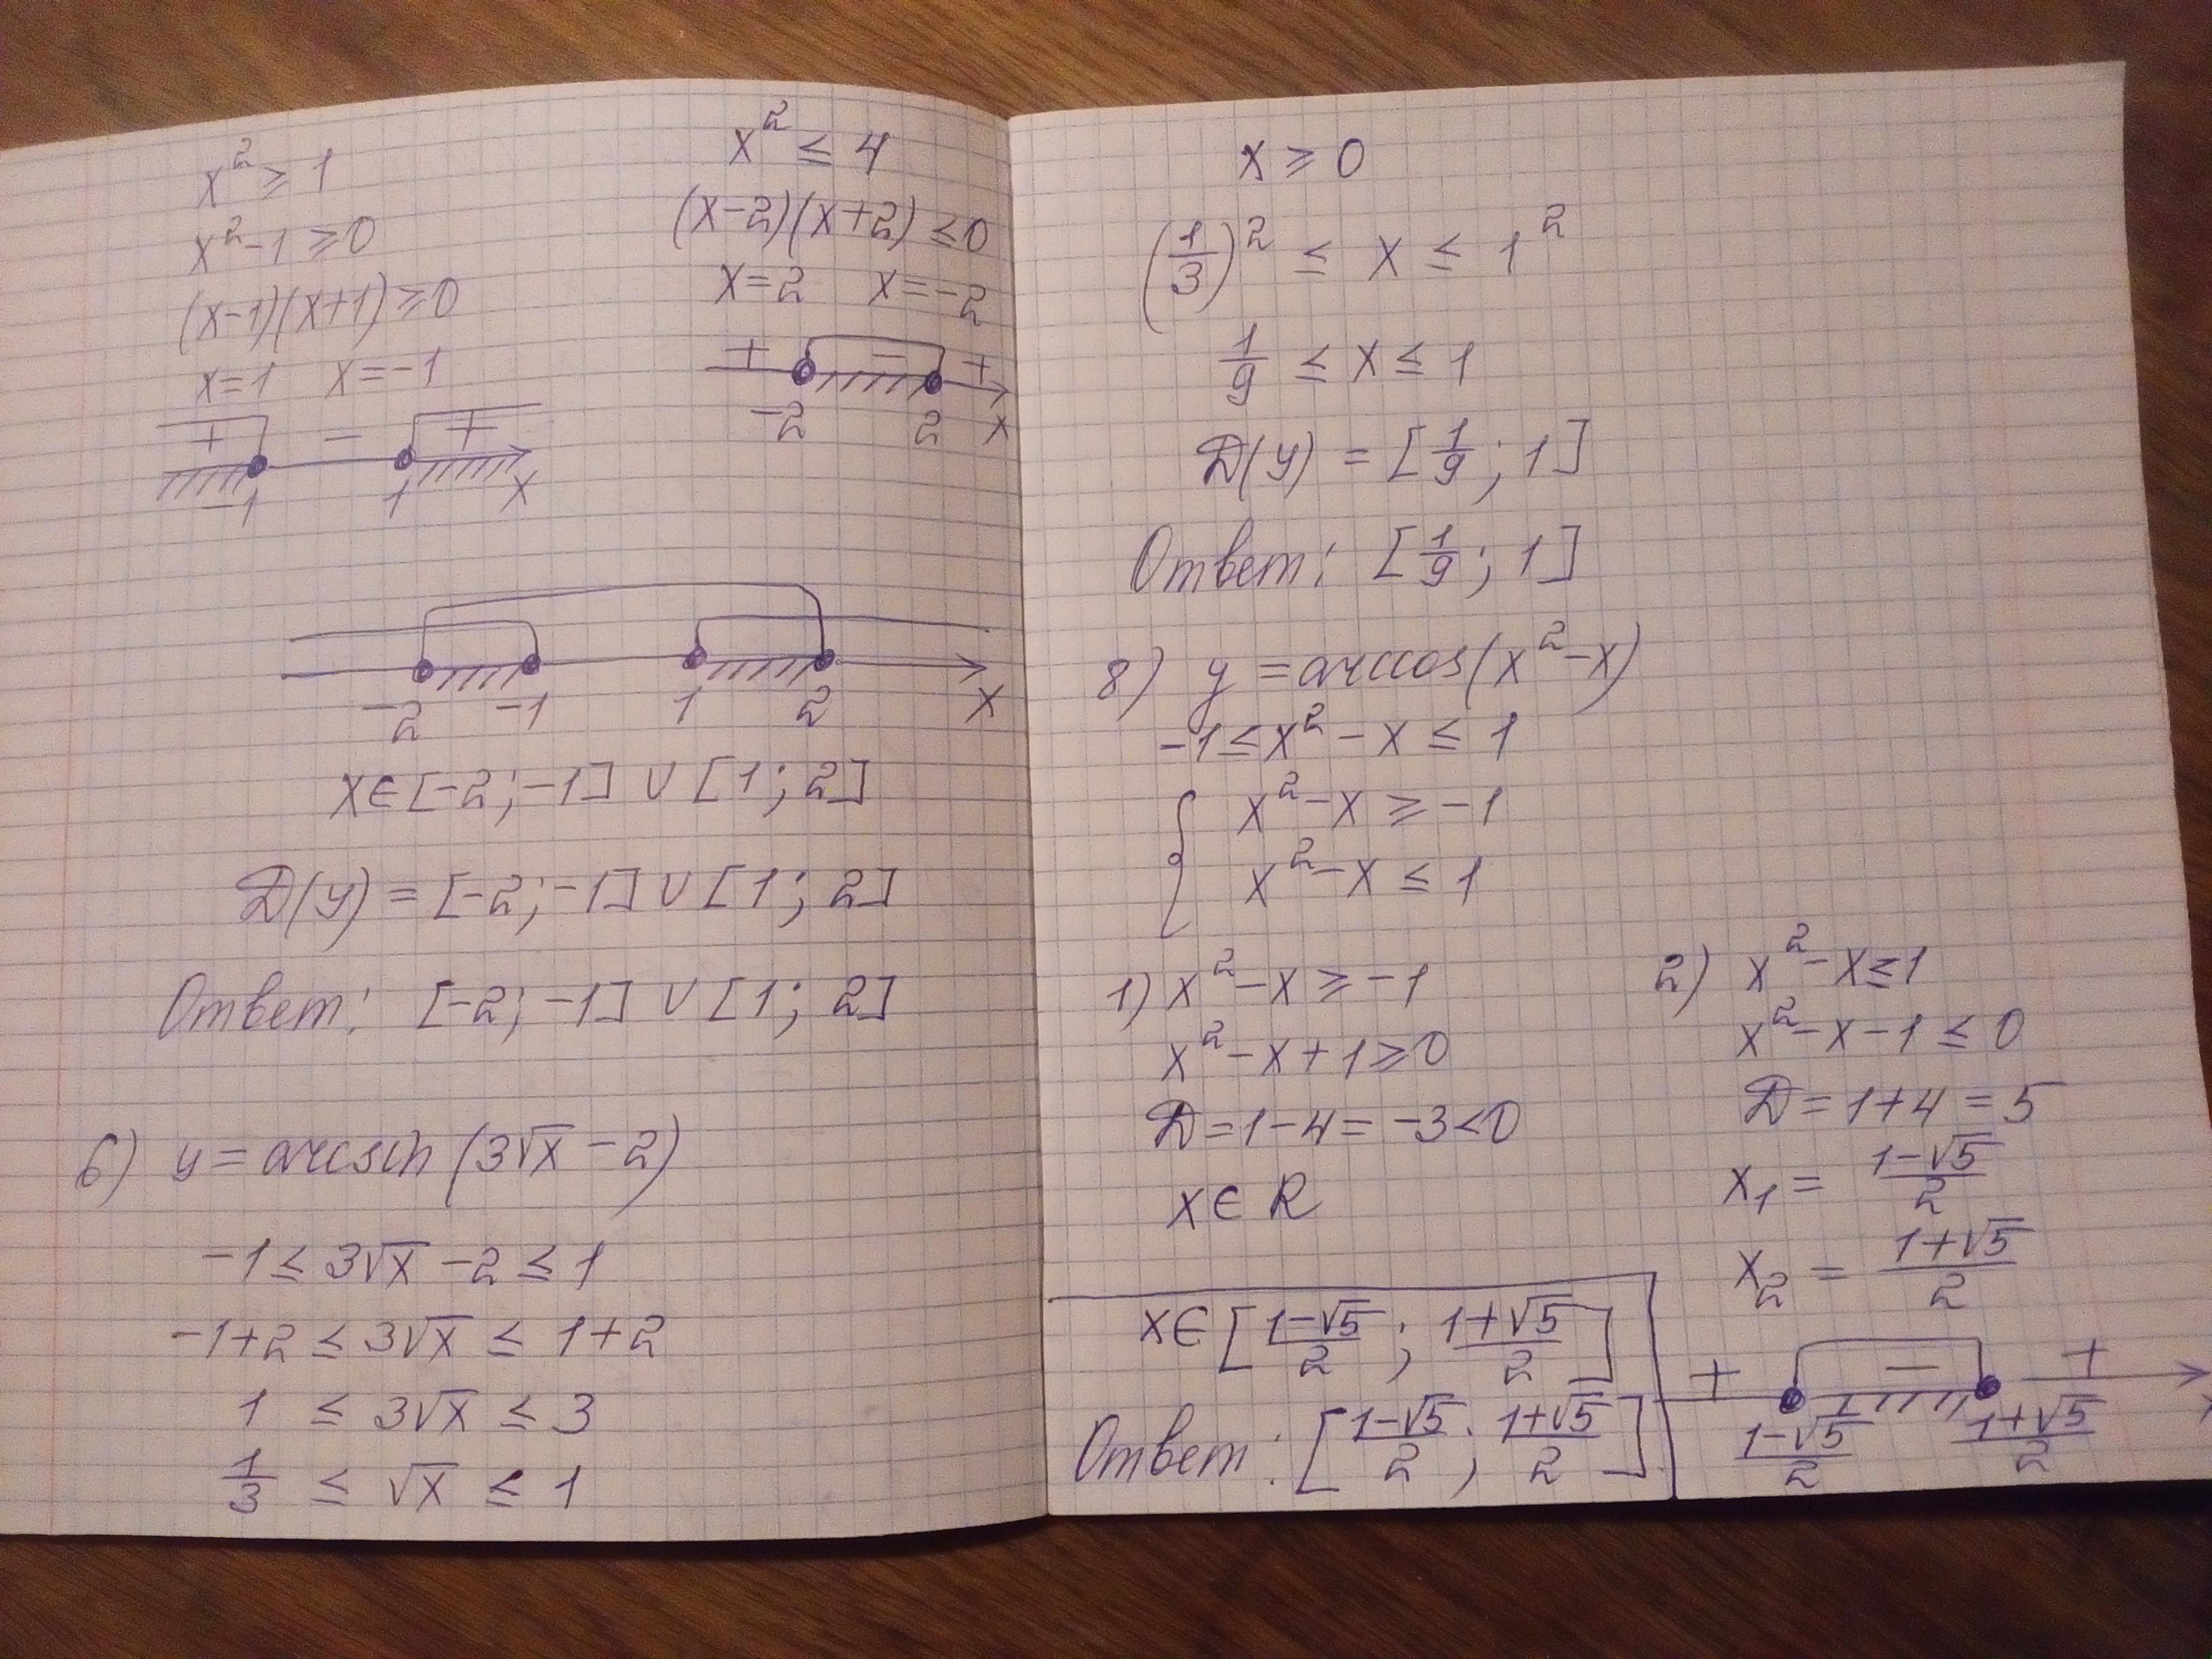 x² ≥ 1
x² - 1 ≥ 0
(x-1)(x+1) ≥ 0
x=1 x=-1
+ - +
-1 1 x
x² ≤ 4
(x-2)(x+2) ≤ 0
x=2 x=-2
+ - +
-2 2 x
-2 -1 1 2 x
x∈[-2; -1] ∪ [1; 2]
D(y) = [-2; -1] ∪ [1; 2]
Ответ: [-2; -1] ∪ [1; 2]
6) y = arcsin (3√x - 2)
-1 ≤ 3√x - 2 ≤ 1
-1+2 ≤ 3√x ≤ 1+2
1 ≤ 3√x ≤ 3
1/3 ≤ √x ≤ 1
x ≥ 0
(1/3)² ≤ x ≤ 1²
1/9 ≤ x ≤ 1
D(y) = [1/9; 1]
Ответ: [1/9; 1]
8) y = arccos(x² - x)
-1 ≤ x² - x ≤ 1
{ x² - x ≥ -1
x² - x ≤ 1
1) x² - x ≥ -1
x² - x + 1 ≥ 0
D = 1 - 4 = -3 < 0
x∈R
2) x² - x ≤ 1
x² - x - 1 ≤ 0
D = 1+4 = 5
x₁ = (1-√5)/2
x₂ = (1+√5)/2
+ - +
(1-√5)/2 (1+√5)/2
x∈[(1-√5)/2; (1+√5)/2]
Ответ: [(1-√5)/2; (1+√5)/2]